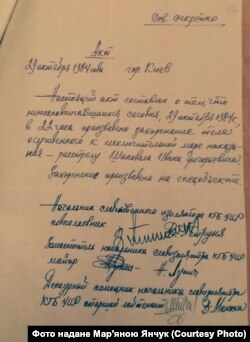 Сов. секретно
Акт
29 октября 1984 года гор Киев
Настоящий акт составлен о том, что
нижеподписавшимися сегодня, 29 октября 1984 г
в 22 часа произведено захоронение тела
осужденного к исключительной мере наказа-
ния – расстрелу
Захоронение произведено на спецобъекте.
Начальник следственного изолятора КГБ УССР
подполковник
Заместитель начальника следизолятора
КГБ УССР
майор
Дежурный помощник начальника следизолятора
КГБ УССР старший лейтенант
Фото надане Мар'яною Янчук (Courtesy Photo)